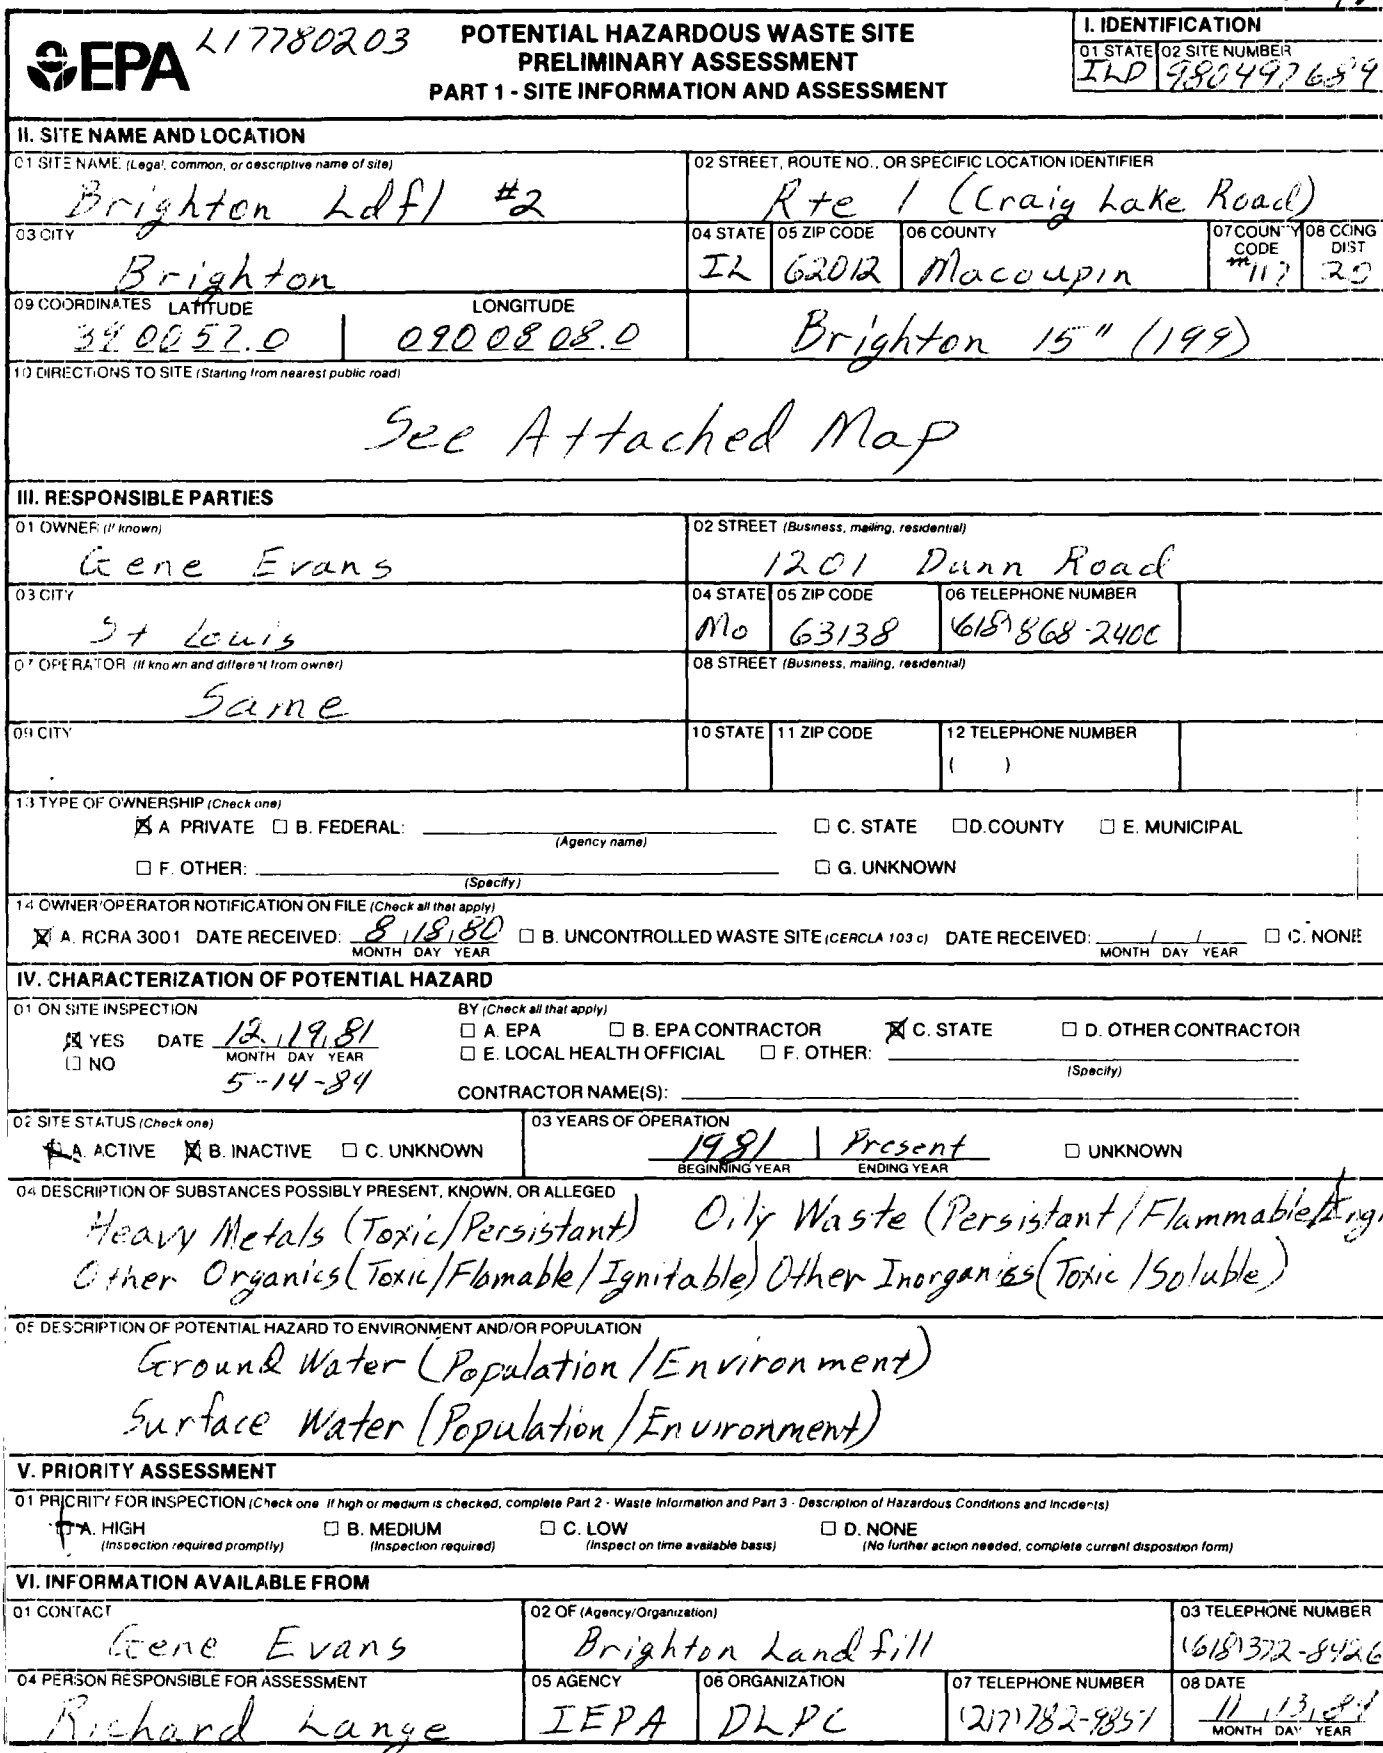 EPA L17780203
POTENTIAL HAZARDOUS WASTE SITE
PRELIMINARY ASSESSMENT
PART 1 - SITE INFORMATION AND ASSESSMENT
I. IDENTIFICATION
01 STATE 02 SITE NUMBER
ILD 980497689
II. SITE NAME AND LOCATION
01 SITE NAME (Legal, common, or descriptive name of site)
Brighton Ldfl #2
02 STREET, ROUTE NO., OR SPECIFIC LOCATION IDENTIFIER
Rte 1 (Craig Lake Road)
03 CITY
Brighton
04 STATE 05 ZIP CODE 06 COUNTY 07 COUNTY CODE 08 CONG DIST
IL 62012 Macoupin 117 20
09 COORDINATES LATITUDE LONGITUDE
390057.0 0900808.0
Brighton 15" (199)
10 DIRECTIONS TO SITE (Starting from nearest public road)
See Attached Map
III. RESPONSIBLE PARTIES
01 OWNER (If known)
Gene Evans
02 STREET (Business, mailing, residential)
1201 Dunn Road
03 CITY
St Louis
04 STATE 05 ZIP CODE 06 TELEPHONE NUMBER
Mo 63138 (618) 868-2400
07 OPERATOR (If known and different from owner)
Same
08 STREET (Business, mailing, residential)
09 CITY
10 STATE 11 ZIP CODE 12 TELEPHONE NUMBER
( )
13 TYPE OF OWNERSHIP (Check one)
A PRIVATE B. FEDERAL: (Agency name) C. STATE D. COUNTY E. MUNICIPAL
F. OTHER: (Specify) G. UNKNOWN
14 OWNER/OPERATOR NOTIFICATION ON FILE (Check all that apply)
A. RCRA 3001 DATE RECEIVED: 8/18/80 B. UNCONTROLLED WASTE SITE (CERCLA 103 c) DATE RECEIVED: / / C. NONE
MONTH DAY YEAR MONTH DAY YEAR
IV. CHARACTERIZATION OF POTENTIAL HAZARD
01 ON SITE INSPECTION
YES DATE 12/19/81
MONTH DAY YEAR
NO
5-14-84
BY (Check all that apply)
A. EPA B. EPA CONTRACTOR C. STATE D. OTHER CONTRACTOR
E. LOCAL HEALTH OFFICIAL F. OTHER:
(Specify)
CONTRACTOR NAME(S):
02 SITE STATUS (Check one)
A. ACTIVE B. INACTIVE C. UNKNOWN
03 YEARS OF OPERATION
1981 | Present UNKNOWN
BEGINNING YEAR ENDING YEAR
04 DESCRIPTION OF SUBSTANCES POSSIBLY PRESENT, KNOWN, OR ALLEGED
Heavy Metals (Toxic/Persistant) Oily Waste (Persistant/Flammable/
Other Organics (Toxic/Flamable/Ignitable) Other Inorganics (Toxic/Soluble)
05 DESCRIPTION OF POTENTIAL HAZARD TO ENVIRONMENT AND/OR POPULATION
Ground Water (Population/Environment)
Surface Water (Population/Environment)
V. PRIORITY ASSESSMENT
01 PRIORITY FOR INSPECTION (Check one. If high or medium is checked, complete Part 2 - Waste Information and Part 3 - Description of Hazardous Conditions and Incidents)
A. HIGH B. MEDIUM C. LOW D. NONE
(Inspection required promptly) (Inspection required) (Inspect on time available basis) (No further action needed, complete current disposition form)
VI. INFORMATION AVAILABLE FROM
01 CONTACT
Gene Evans
02 OF (Agency/Organization)
Brighton Landfill
03 TELEPHONE NUMBER
(618) 372-8426
04 PERSON RESPONSIBLE FOR ASSESSMENT
Richard Lange
05 AGENCY
IEPA
06 ORGANIZATION
DLPC
07 TELEPHONE NUMBER
(217) 782-9851
08 DATE
11/13/84
MONTH DAY YEAR